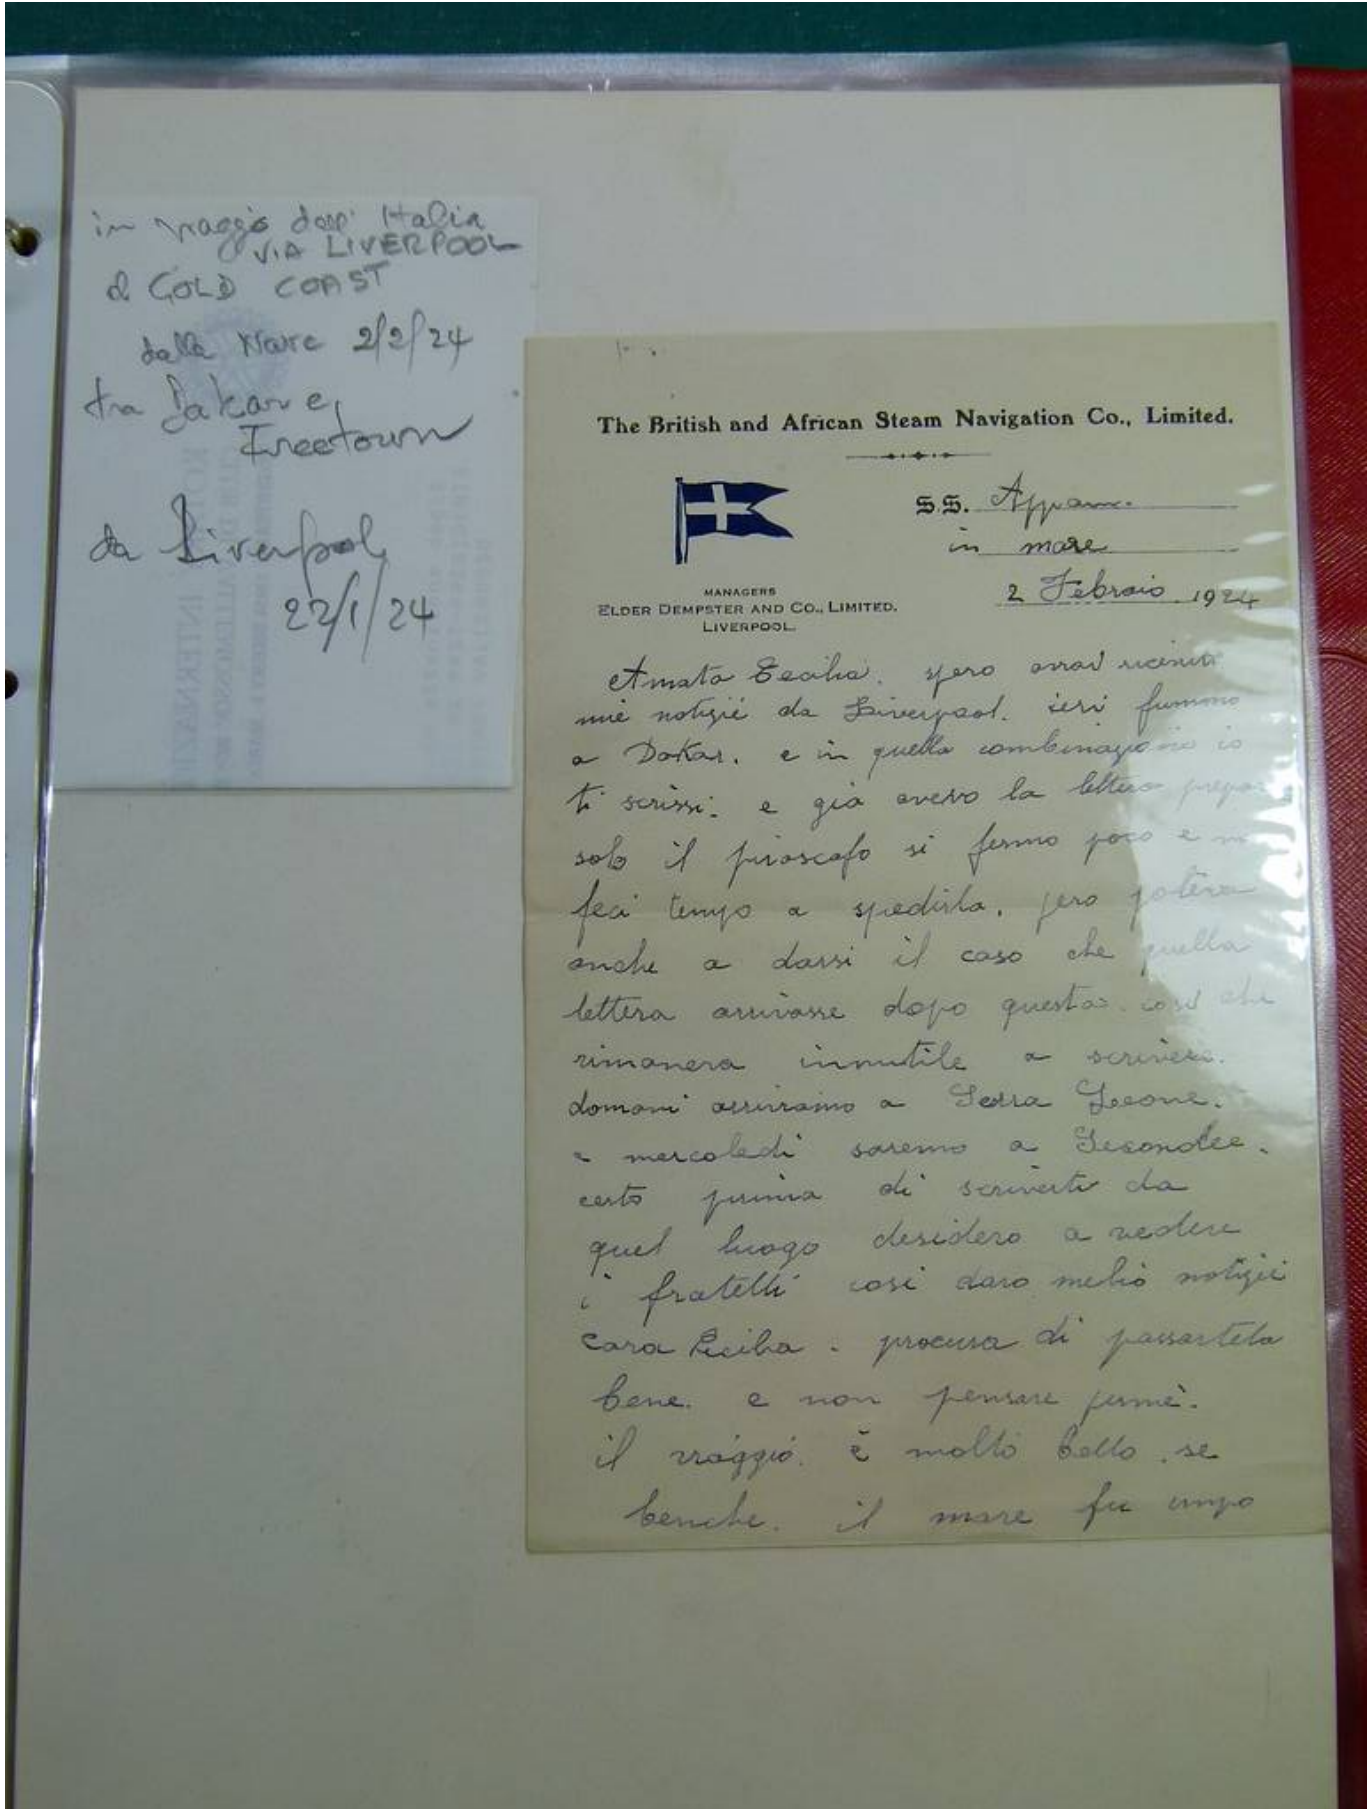 in viaggio dall' Italia
VIA LIVERPOOL
a GOLD COAST
dalla Nave 2/2/24
tra Dakar e
Freetown
da Liverpool
22/1/24
The British and African Steam Navigation Co., Limited.
S.S. Appam.
in mare
2 Febraio 1924
MANAGERS
ELDER DEMPSTER AND CO., LIMITED.
LIVERPOOL.
Amata Cecilia. spero avrai ricevuto
mie notizie da Liverpool. ieri fummo
a Dakar. e in quella combinazione io
ti scrissi. e già avevo la lettera
solo il piroscafo si fermo poco e
feci tempo a spedirla. pero potera
anche a darsi il caso che quella
lettera arrivasse dopo questa. così che
rimanera innutile a scrivere.
domani arrivamo a Serra Leone.
e mercoledi saremo a Seconдее.
certo prima di scriverti da
quel luogo desidero a vedere
i fratelli cosi daro melio notizie
cara Cecilia. procura di passartela
bene. e non pensare permè.
il viaggio. è molto bello. se
benche. il mare fu umpo